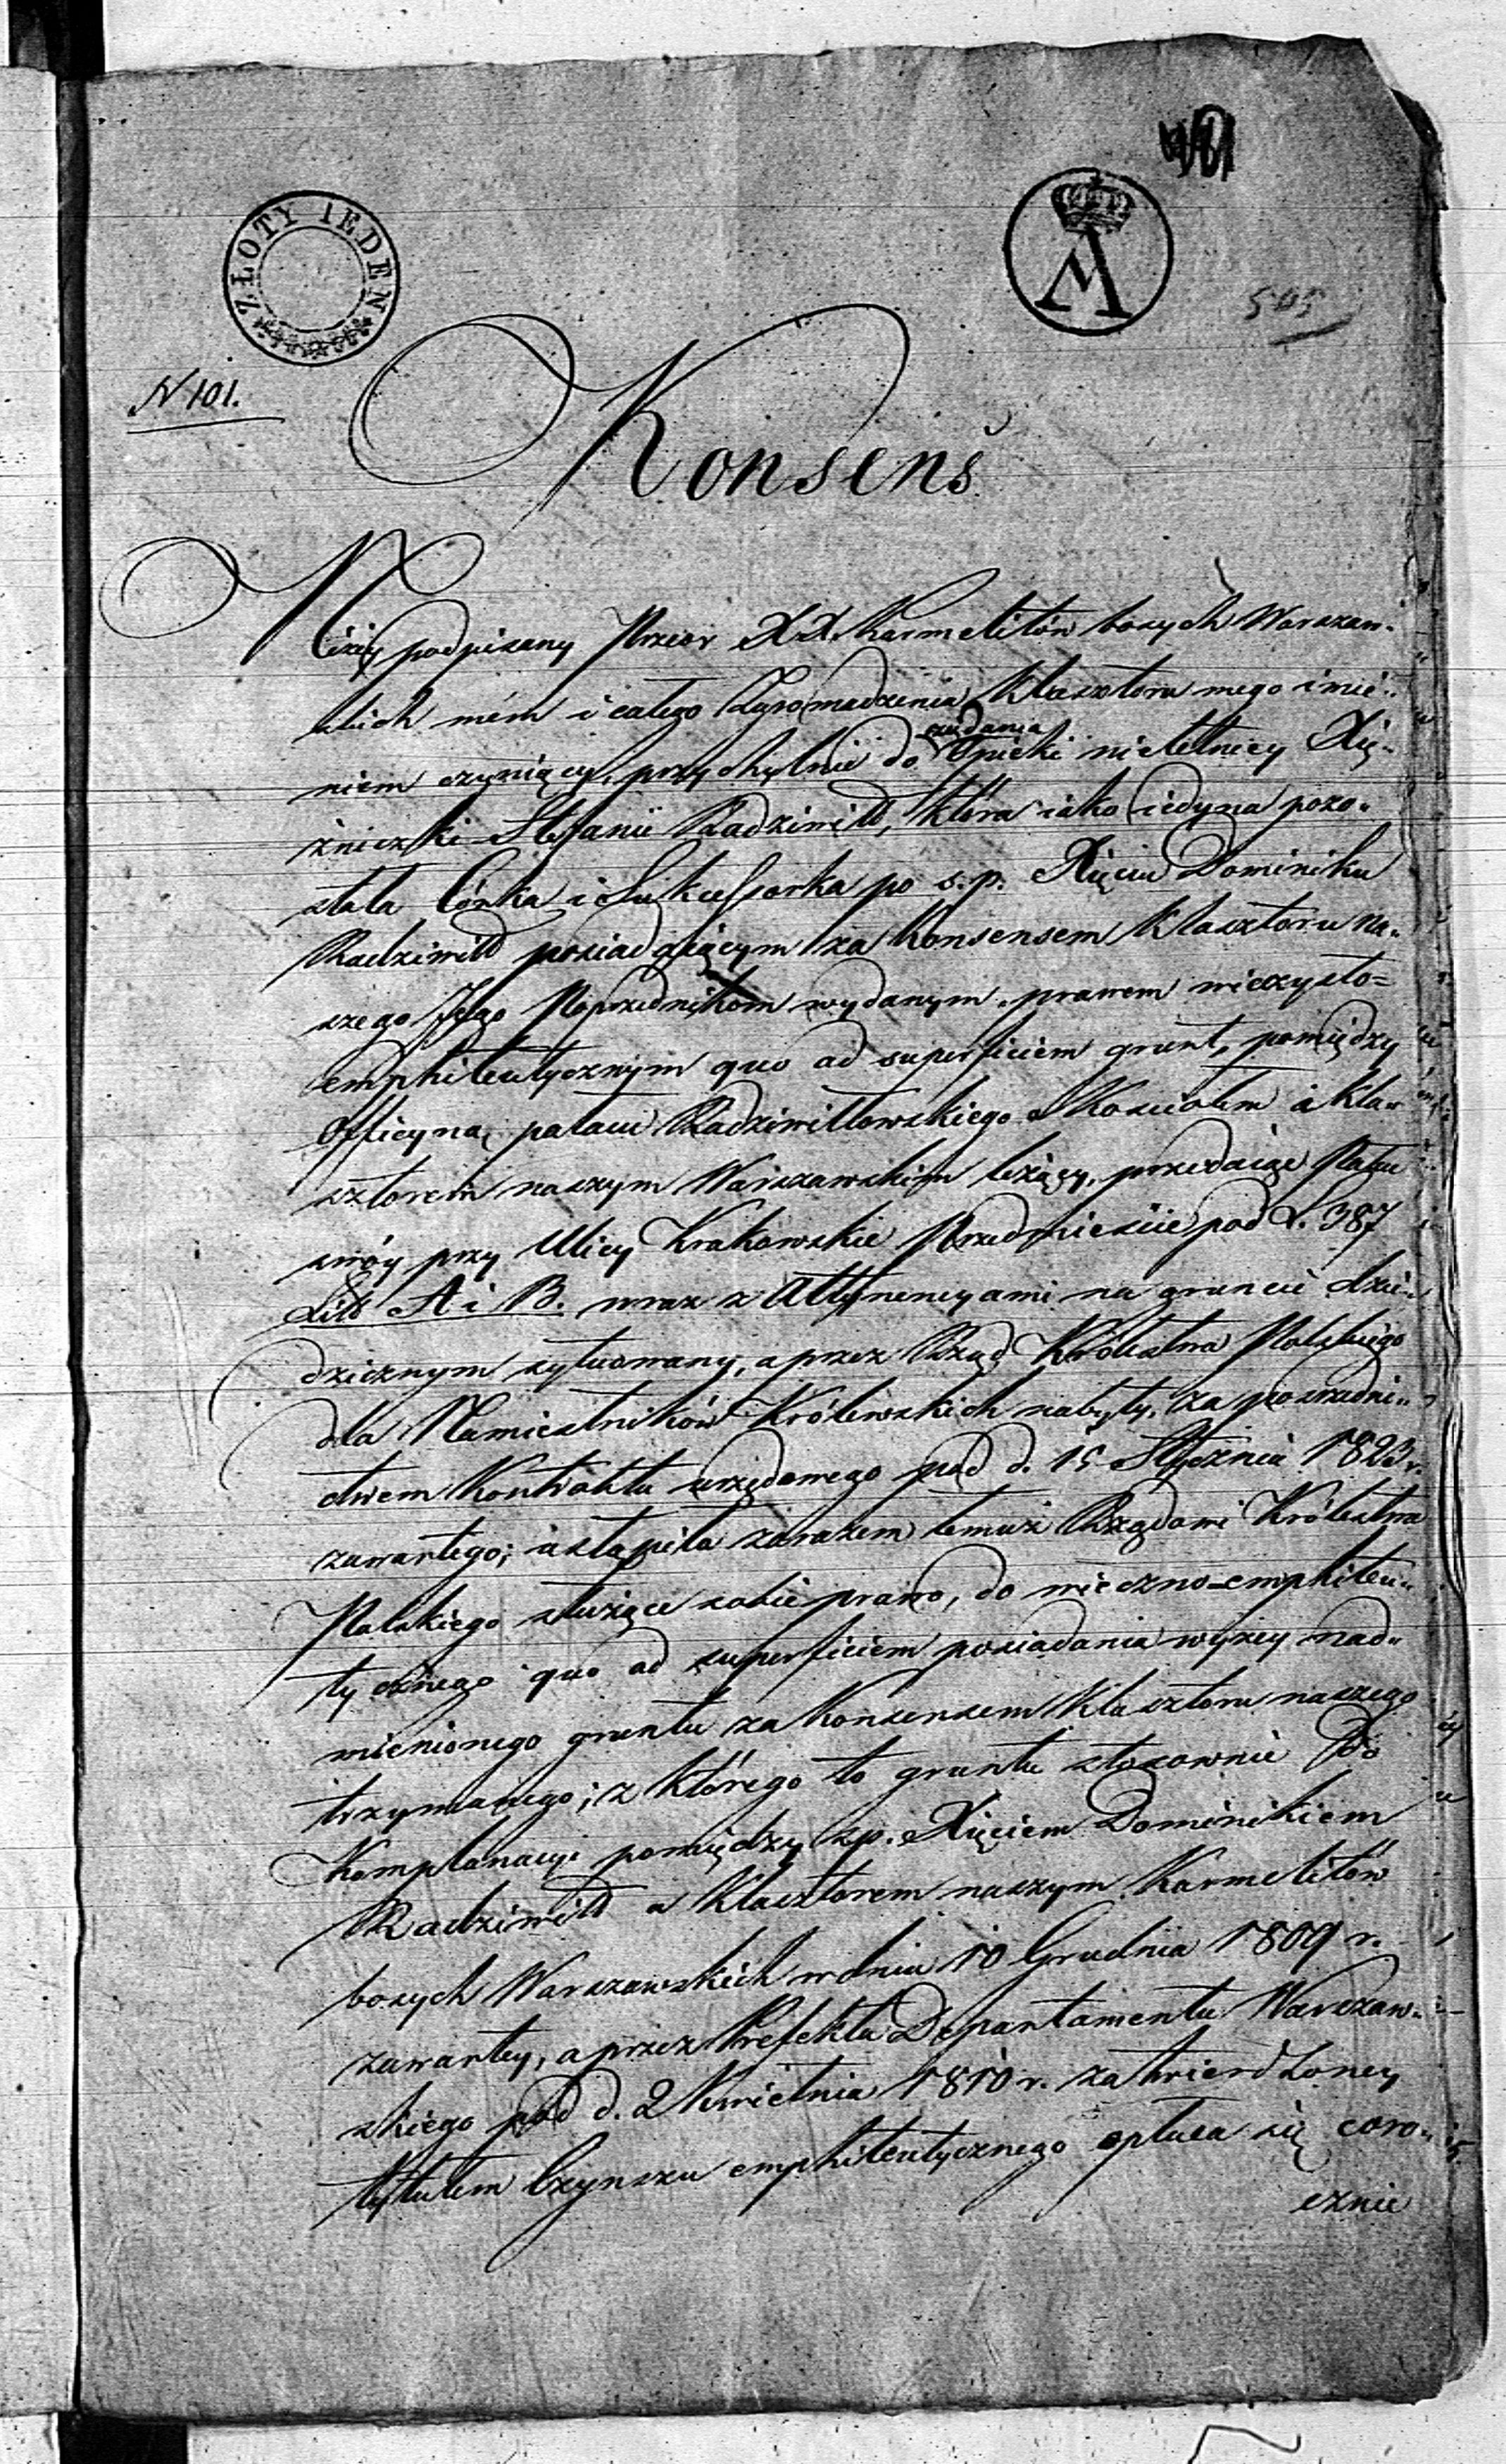 ZŁOTY IEDEN
505
N 101.
Konsens
Niżéy podpisany Przeor XX. Karmelitów bosych Warszaw-
skich mém i całego Zgromadzenia Klasztoru mego imie-
niem czyniący, przychylnie do żądania
Opieki nieletniey Xię-
żniczki Stefanii Radziwiłł, która iako iedyna pozo-
stała Córka i Sukcessorka po s.p. Xięciu Dominiku
Radziwiłł posiadaiącym za Konsensem Klasztoru na-
szego Jego Poprzednikom wydanym, prawem wieczysto=
emphiteutycznym quo ad superficiem grunt, pomiędzy
Officyną pałacu Radziwiłłowskiego a Kościołem i Kla-
sztorem naszym Warszawskim leżący, przedaiąc Pałac
swóy przy Ulicy Krakowskie Przedmieście pod L. 387
Litt A i B. wraz z Attynencyami na gruncie dzie-
dzicznym sytuowany, a przez Rząd Królestwa Polskiego
dla Namiestników Królewskich nabyty, za pośredni-
ctwem Kontraktu urzędowego pod d. 15 Stycznia 1823 r.
zawartego; ustąpiła zarazem temuż Rządowi Królestwa
Polskiego służące sobie prawo, do wieczno-emphiteu-
tycznego quo ad superficiem posiadania wyżey nad-
mienionego gruntu za Konsensem Klasztoru naszego
trzymanego; z którego to gruntu stosownie do
Komplanacyi pomiędzy s.p. Xięciem Dominikiem
Radziwiłł a Klasztorem naszym Karmelitów
bosych Warszawskich w dniu 10 Grudnia 1809 r.
zawartey, a przez Prefekta Departamentu Warszaw-
skiego pod d. 2 Kwietnia 1810 r. zatwierdzoney
tytułem Czynszu emphiteutycznego opłaca się coro-
cznie